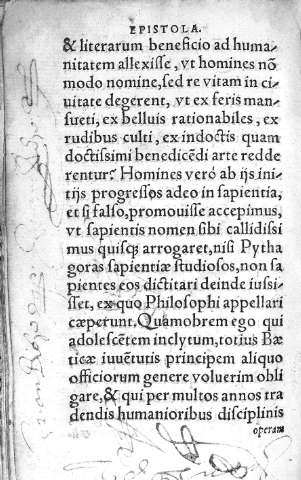 EPISTOLA.
& literarum beneficio ad huma-
nitatem allexisse, vt homines nõ
modo nomine, sed re vitam in ci-
uitate degerent, vt ex feris man-
sueti, ex belluis rationabiles, ex
rudibus culti, ex indoctis quam
doctissimi benedicẽdi arte redde
rentur? Homines verò ab ijs ini-
tijs progressos adeo in sapientia,
et si falso, promouisse accepimus,
vt sapientis nomen sibi callidissi
mus quisq; arrogaret, nisi Pytha
goras sapientiæ studiosos, non sa
pientes eos dictitari deinde iussis-
set, ex quo Philosophi appellari
cæperunt. Quamobrem ego qui
adolescẽtem inclytum, totius Bæ
ticæ iuuẽtutis principem aliquo
officiorum genere voluerim obli
gare, & qui per multos annos tra
dendis humanioribus disciplinis
operam